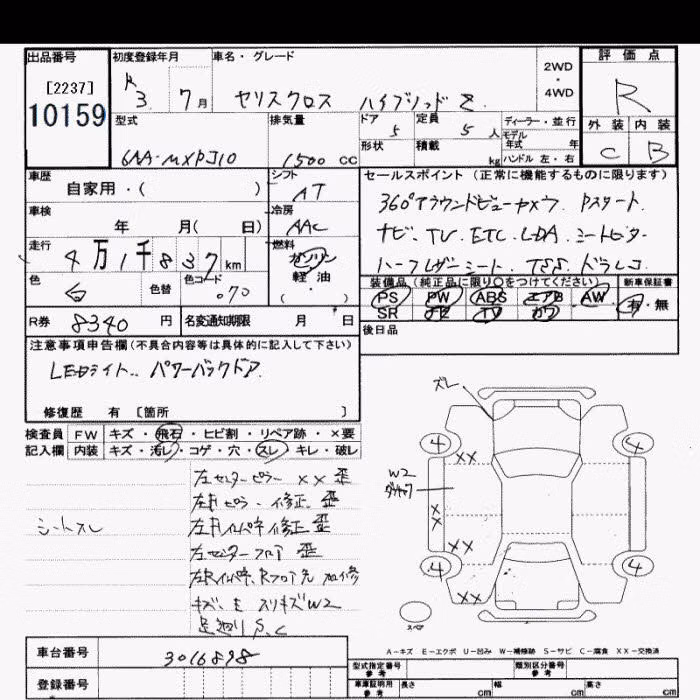 出品番号 初度登録年月 車名・グレード 2WD・4WD 評価点
[2237]
10159
R3. 7月 ヤリスクロス ハイブリッドZ R
型式 排気量 ドア 定員 ディーラー・並行 外装 内装
5 5人 モデル年式 年
6AA-MXPJ10 1500cc 形状 積載 kg ハンドル 左・右 C B
車歴 シフト セールスポイント(正常に機能するものに限ります)
自家用・( ) AT 360°アラウンドビューカメラ. Pスタート
車検 冷房
年 月( 日) AAC ナビ. TV. ETC. LDA. シートヒーター
走行 燃料
4万1千837km ガソリン・軽油・( ) ハーフレザーシート. TSS. ドラレコ
色 色替 色コード 装備品(純正品に限り○をつけてください) 新車保証書
白 070 PS PW ABS エアB AW 有・無
SR ナビ TV カワ
R券 8340円 名変通知期限 月 日 後日品
注意事項申告欄(不具合内容等は具体的に記入して下さい)
LEDライト.. パワーバックドア
修復歴 有 [箇所 ]
検査員 FW キズ・飛石・ヒビ割・リペア跡・×要
記入欄 内装 キズ・汚レ・コゲ・穴・スレ・キレ・破レ
左センターピラー ×× 歪
修正 歪
シートスレ
修正 歪
左センターフロア 歪
キズ、E スリキズW2
足廻りS、C
ズレ
4 4
××
W2
×
×
××
4 4
××
スペア
A-キズ E-エクボ U-凹み W-補修跡 S-サビ C-腐食 XX-交換済
車台番号 3016898
型式指定番号 参考 類別区分番号 参考
登録番号 車庫証明用 参考 長さ cm 幅 cm 高さ cm